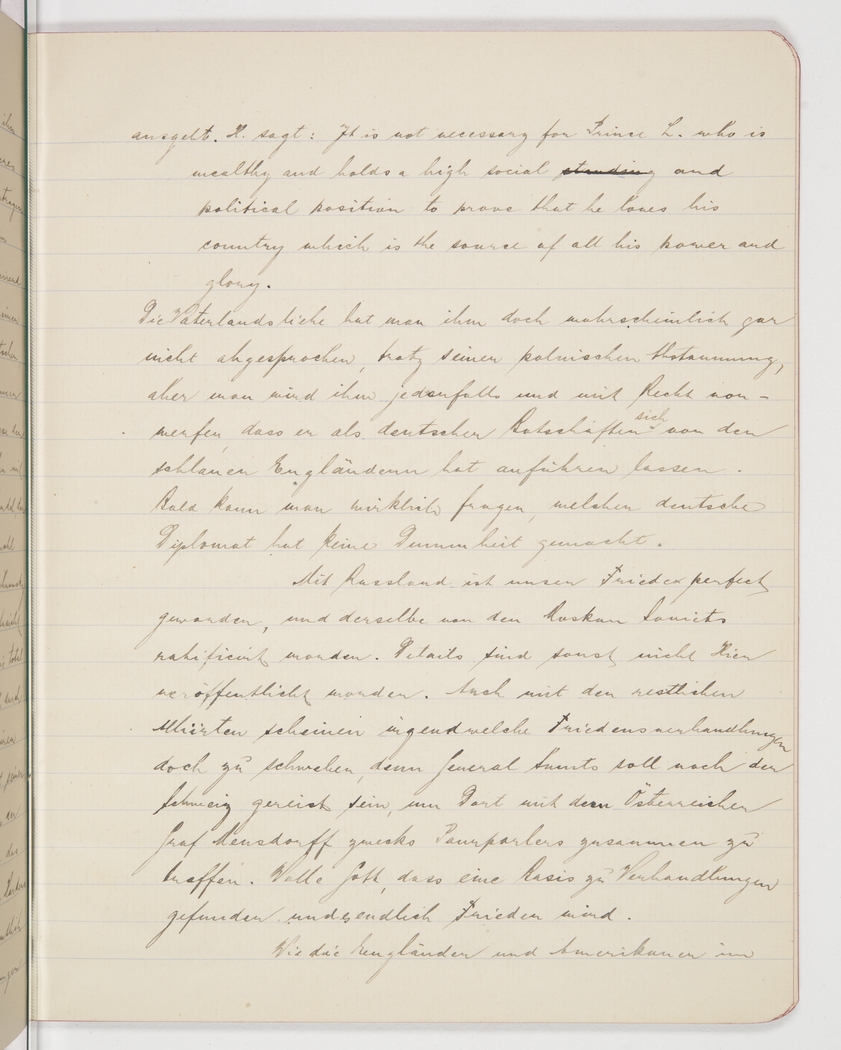 ausgelt. H. sagt: It is not necessary for Prince L. who is
wealthy and holds a high social standing and
political position to prove that he loves his
country which is the source of all his power and
glory.
Die Vaterlandsliebe hat man ihm doch wahrscheinlich gar
nicht abgesprochen, trotz seiner polnischen Abstammung,
aber man wird ihm jedenfalls und mit Recht vor-
werfen, dass er als deutscher Botschafter sich von den
schlauen Engländern hat anführen lassen.
Bald kann man wirklich fragen, welcher deutsche
Diplomat hat keine Dummheit gemacht.
Mit Russland ist unser Friede perfect
geworden, und derselbe von den Moskau Soviets
ratificirt worden. Details sind sonst nicht hier
veröffentlicht worden. Auch mit den restlichen
Alliirten scheinen irgendwelche Friedensverhandlungen
doch zu schweben, denn General Smuts soll nach der
Schweiz gereist sein, um dort mit dem Österreicher
Graf Mensdorff zwecks Pourparlers zusammen zu
treffen. Wolle Gott, dass eine Basis zu Verhandlungen
gefunden und endlich Frieden wird.
Wie die Engländer und Amerikaner im